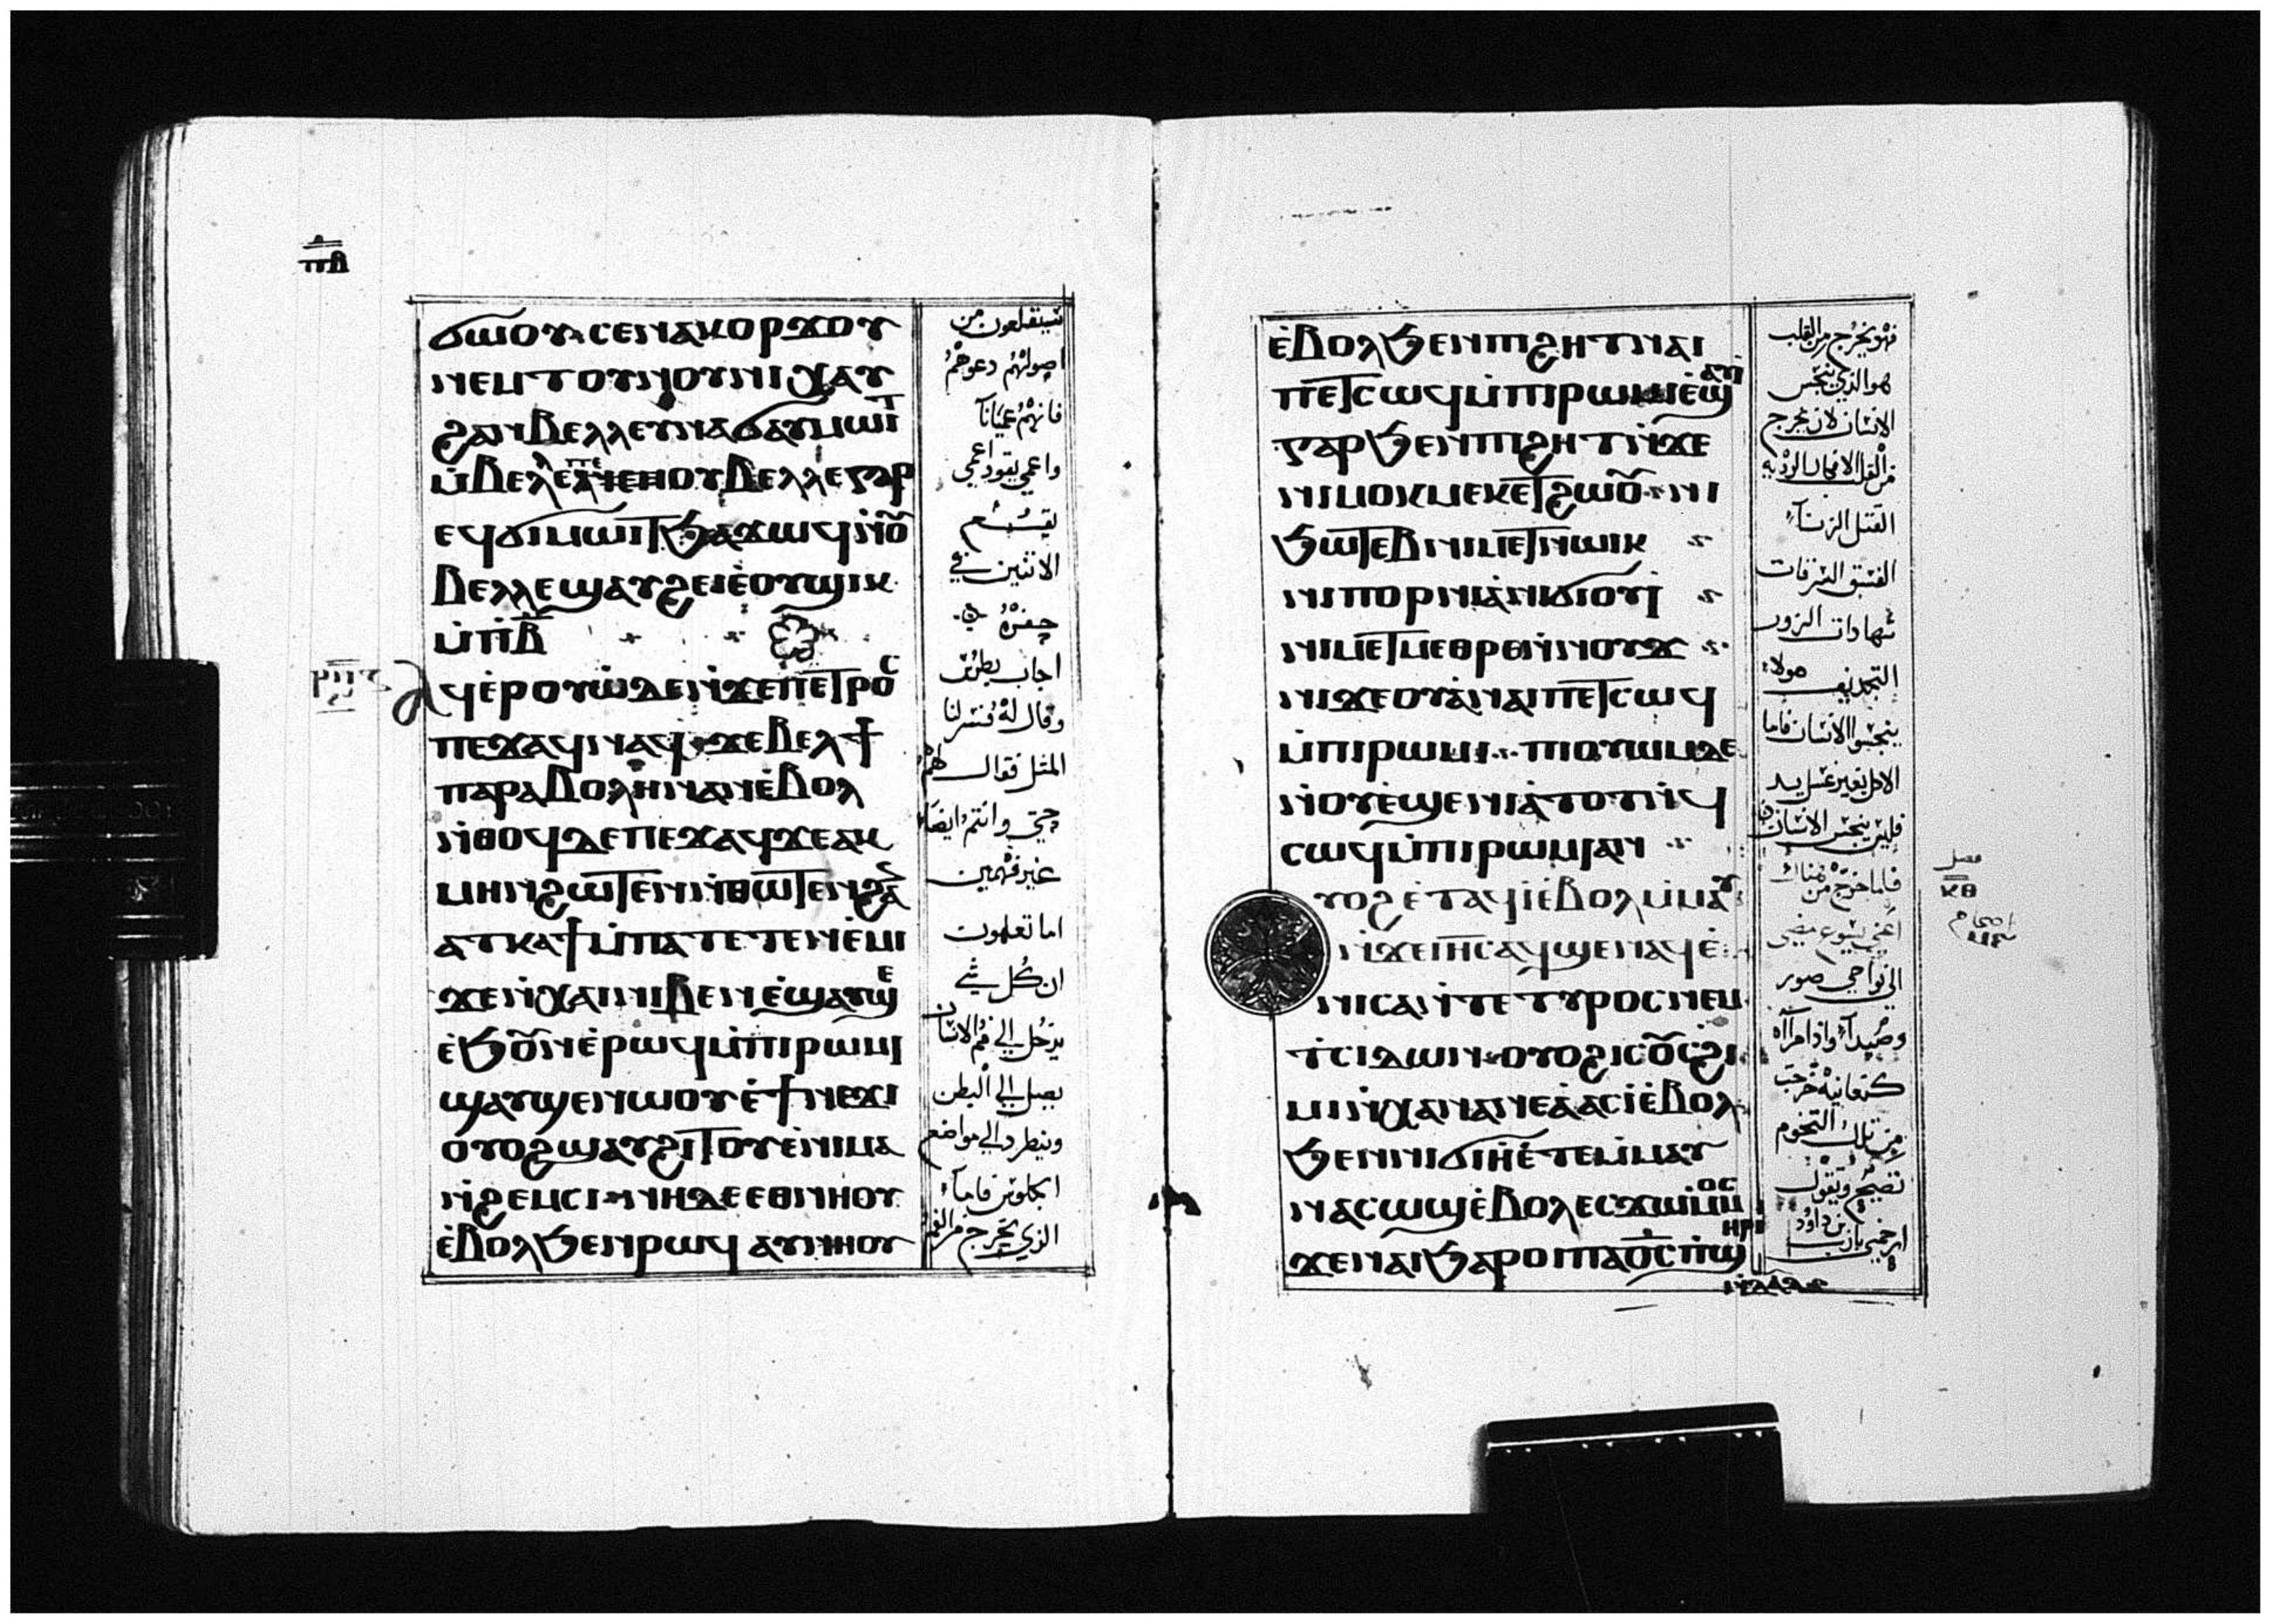 ⲡⲃ
ϭⲱⲟⲩ ⲥⲉⲛⲁⲕⲟⲣϫⲟⲩ
ⲛⲉⲙⲧⲟⲩⲛⲟⲩⲛⲓ ⲭⲁⲩ
ϩⲁⲛⲃⲉⲗⲗⲉⲩⲛⲁϭⲁⲩⲙⲱⲓⲧ
ⲙ̀ⲃⲉⲗⲗⲉ ⲟⲩⲃⲉⲗⲗⲉⲅⲁⲣ
ⲉϥϭⲓⲙⲱⲓⲧϧⲁϫⲱϥⲛ̀ⲟⲩ
ⲃⲉⲗⲗⲉϣⲁⲩϩⲉⲓⲉ̀ⲟⲩϣⲓⲕ
ⲙ̀ⲡⲃ̅
ⲁϥⲉ̀ⲣⲟⲩⲱ̀ⲇⲉⲛ̀ϫⲉⲡⲉⲧⲣⲟⲥ
ⲡⲉϫⲁϥⲛⲁϥ ϫⲉⲃⲉⲗϯ
ⲡⲁⲣⲁⲃⲟⲗⲏⲛⲁⲛⲉ̀ⲃⲟⲗ
ⲛ̀ⲑⲟϥⲇⲉⲡⲉϫⲁϥϫⲉⲁⲕ
ⲙⲏⲛϩⲱⲧⲉⲛⲛ̀ⲑⲱⲧⲉⲛϩⲁ
ⲁⲧⲕⲁϯⲙ̀ⲡⲁⲧⲉⲧⲉⲛⲉ̀ⲙⲓ
ϫⲉⲛ̀ⲭⲁⲓⲛⲓⲃⲉⲛⲉ̀ϣⲁⲩϣⲉ
ⲉ̀ϧⲟⲩⲛⲉ̀ⲣⲱϥⲙ̀ⲡⲓⲣⲱⲙⲓ
ϣⲁⲩϣⲉⲛⲱⲟⲩⲉ̀ϯⲛⲉϫⲓ
ⲟⲩⲟϩϣⲁⲩϩⲓⲧⲟⲩⲉ̀ⲛⲓⲙⲁ
ⲛ̀ϩⲉⲙⲥⲓ ⲛⲏⲇⲉⲉⲑⲛⲏⲟⲩ
ⲉ̀ⲃⲟⲗϧⲉⲛⲣⲱϥ ⲁⲩⲛⲏⲟⲩ
سينقلعون من
اصولهم دعوهم
فانهم عميانا
واعمي يقود اعمي
يقع
الاثنين في
حفره
اجاب بطرس
وقال له فسر لنا
المثل فقال لهم
حتي وانتم ايضا
غير فهمين
اما تعلمون
ان كل شي
يدخل الي فم الانسان
يصل الي البطن
وينطرد الي مواضع
الجلوس فاما
الذي يخرج من الفم
ⲉ̀ⲃⲟⲗϧⲉⲛⲡϩⲏⲧⲛⲁⲓ
ⲡⲉⲧⲥⲱϥⲙ̀ⲡⲓⲣⲱⲙⲓ ⲉ̀ϣⲁⲩⲓ̀
ⲅⲁⲣϧⲉⲛⲡϩⲏⲧⲛ̀ϫⲉ
ⲛⲓⲙⲟⲕⲙⲉⲕⲉⲧϩⲱⲟⲩ ⲛⲓ
ϧⲱⲧⲉⲃⲛⲓⲙⲉⲧⲛⲱⲓⲕ
ⲛⲓⲡⲟⲣⲛⲓⲁ̀ⲛⲓϭⲓⲟⲩⲓ̀
ⲛⲓⲙⲉⲧⲙⲉⲑⲣⲉⲛ̀ⲛⲟⲩϫ
ⲛⲓϫⲉⲟⲩⲁ̀ⲛⲁⲓⲡⲉⲧⲥⲱϥ
ⲙ̀ⲡⲓⲣⲱⲙⲓ ⲡⲓⲟⲩⲱⲙⲇⲉ
ⲛ̀ⲟⲩⲉ̀ϣⲉⲛⲓⲁ̀ⲧⲟⲧⲛ̀ϥ
ⲥⲱϥⲙ̀ⲡⲓⲣⲱⲙⲓⲁⲛ
ⲩⲟϩⲉ̀ⲧⲁϥⲓ̀ⲉ̀ⲃⲟⲗⲙ̀ⲙⲁⲩ
ⲛ̀ϫⲉⲓⲏⲥⲁϥϣⲉⲛⲁϥⲉ̀
ⲛⲓⲥⲁⲛ̀ⲧⲉⲧⲩⲣⲟⲥⲛⲉⲙ
ⲧ̀ⲥⲓⲇⲱⲛ ⲟⲩⲟϩⲓⲥⲟⲩⲥϩⲓ
ⲙⲓⲛ̀ⲭⲁⲛⲁⲛⲉⲁ̀ⲁⲥⲓ̀ⲉ̀ⲃⲟⲗ
ϧⲉⲛⲛⲓϭⲓⲏ̀ⲉ̀ⲧⲉⲙ̀ⲙⲁⲩ
ⲛⲁⲥⲱϣⲉ̀ⲃⲟⲗⲉⲥϫⲱⲙ̀ⲙⲟⲥ
ϫⲉⲛⲁⲓϧⲁⲣⲟⲓⲡⲁⲟ̅ⲥ̅ⲡ̀ϣⲏⲣⲓ
ⲛ̀ⲇⲁⲇ
فهو يخرج من القلب
هو الذي ينجس
الانسان لان يخرج
من القلب الافكار الرديه
القتل الزناء
الفسق السرقات
شهادات الزور
التجديف هولاء
ينجسوا الانسان فاما
الاكل بغير غسل يد
فليس ينجس الانسان
فلما خرج من هناك
اعني يسوع مضي
الي نواحي صور
وصيدا واذا امراه
كنعانيه خرجت
من تلك التخوم
تصيح وتقول
ارحمني يارب بن داوود
فصل
ⲝⲑ
اصحاح